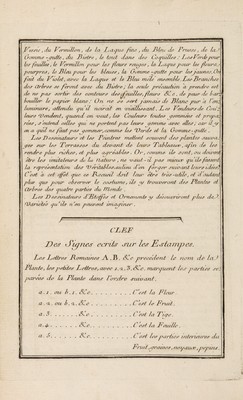 Vases, du Vermillon, de la Laque fine, du Bleu de Prusse, de la
Gomme-gutte, du Bistre; le tout dans des Coquilles. Le Verd pour
les feuilles, le Vermillon pour les fleurs rouges, la Laque pour les fleurs
pourpres, le Bleu pour les blaues, la Gomme-gutte pour les jaunes. On
fait du Violet, avec la Laque et le Bleu mêlés ensemble. Les Branches
des Arbres se feront avec du Bistre; la seule précaution à prendre est
de ne pas sortir des contours des feuilles, fleurs &c., de peur de bar-
bouiller le papier blanc. On ne se sert jamais de Blanc pur à l'en-
luminure, attendu qu'il noircit en vieillissant. Les Vendeurs de Coul-
leurs vendent, quand on veut, les Couleurs toutes gommées et prépa-
rées, surtout celles qui ne portent pas leurs gomme avec elles; car il y
en a qu'il ne faut pas gommer, comme les Verds et la Gomme-gutte.
Les Dessinateurs et les Peintres mettent souvent des plantes sauva-
ges sur les Terrasses du devant de leurs Tableaux, afin de les
rendre plus riches, et plus agréables. Or, comme ils sont, ou doivent
être les imitateurs de la nature, ne vaut-il pas mieux qu'ils fassent
la représentation des Véritables, au lieu d'en forger suivant leurs idées?
C'est à cet effet que ce Recueil doit leur être très-utile, et d'autant
plus que pour observer le costume, ils y trouveront des Plantes et
Arbres des quatre parties du Monde.
Les Dessinateurs d'Etoffes et Ornements y découvriront plus de
Variétés qu'ils n'en peuvent imaginer.
CLEF
Des Signes ecrits sur les Estampes.
Les Lettres Romaines A, B. &c précédent le nom de la
Plante, les petites Lettres, avec 1.2.3. &c. marquent les parties sé-
parées de la Plante dans l'ordre suivant.
a.1. ou b.1. &c. C'est la Fleur.
a.2. ou b.2. &c. C'est le Fruit.
a.3. &c. C'est la Tige.
a.4. &c. C'est la Feuille.
a.5. &c. C'est les parties interieures du
Fruit, graines, noyaux, pepins.